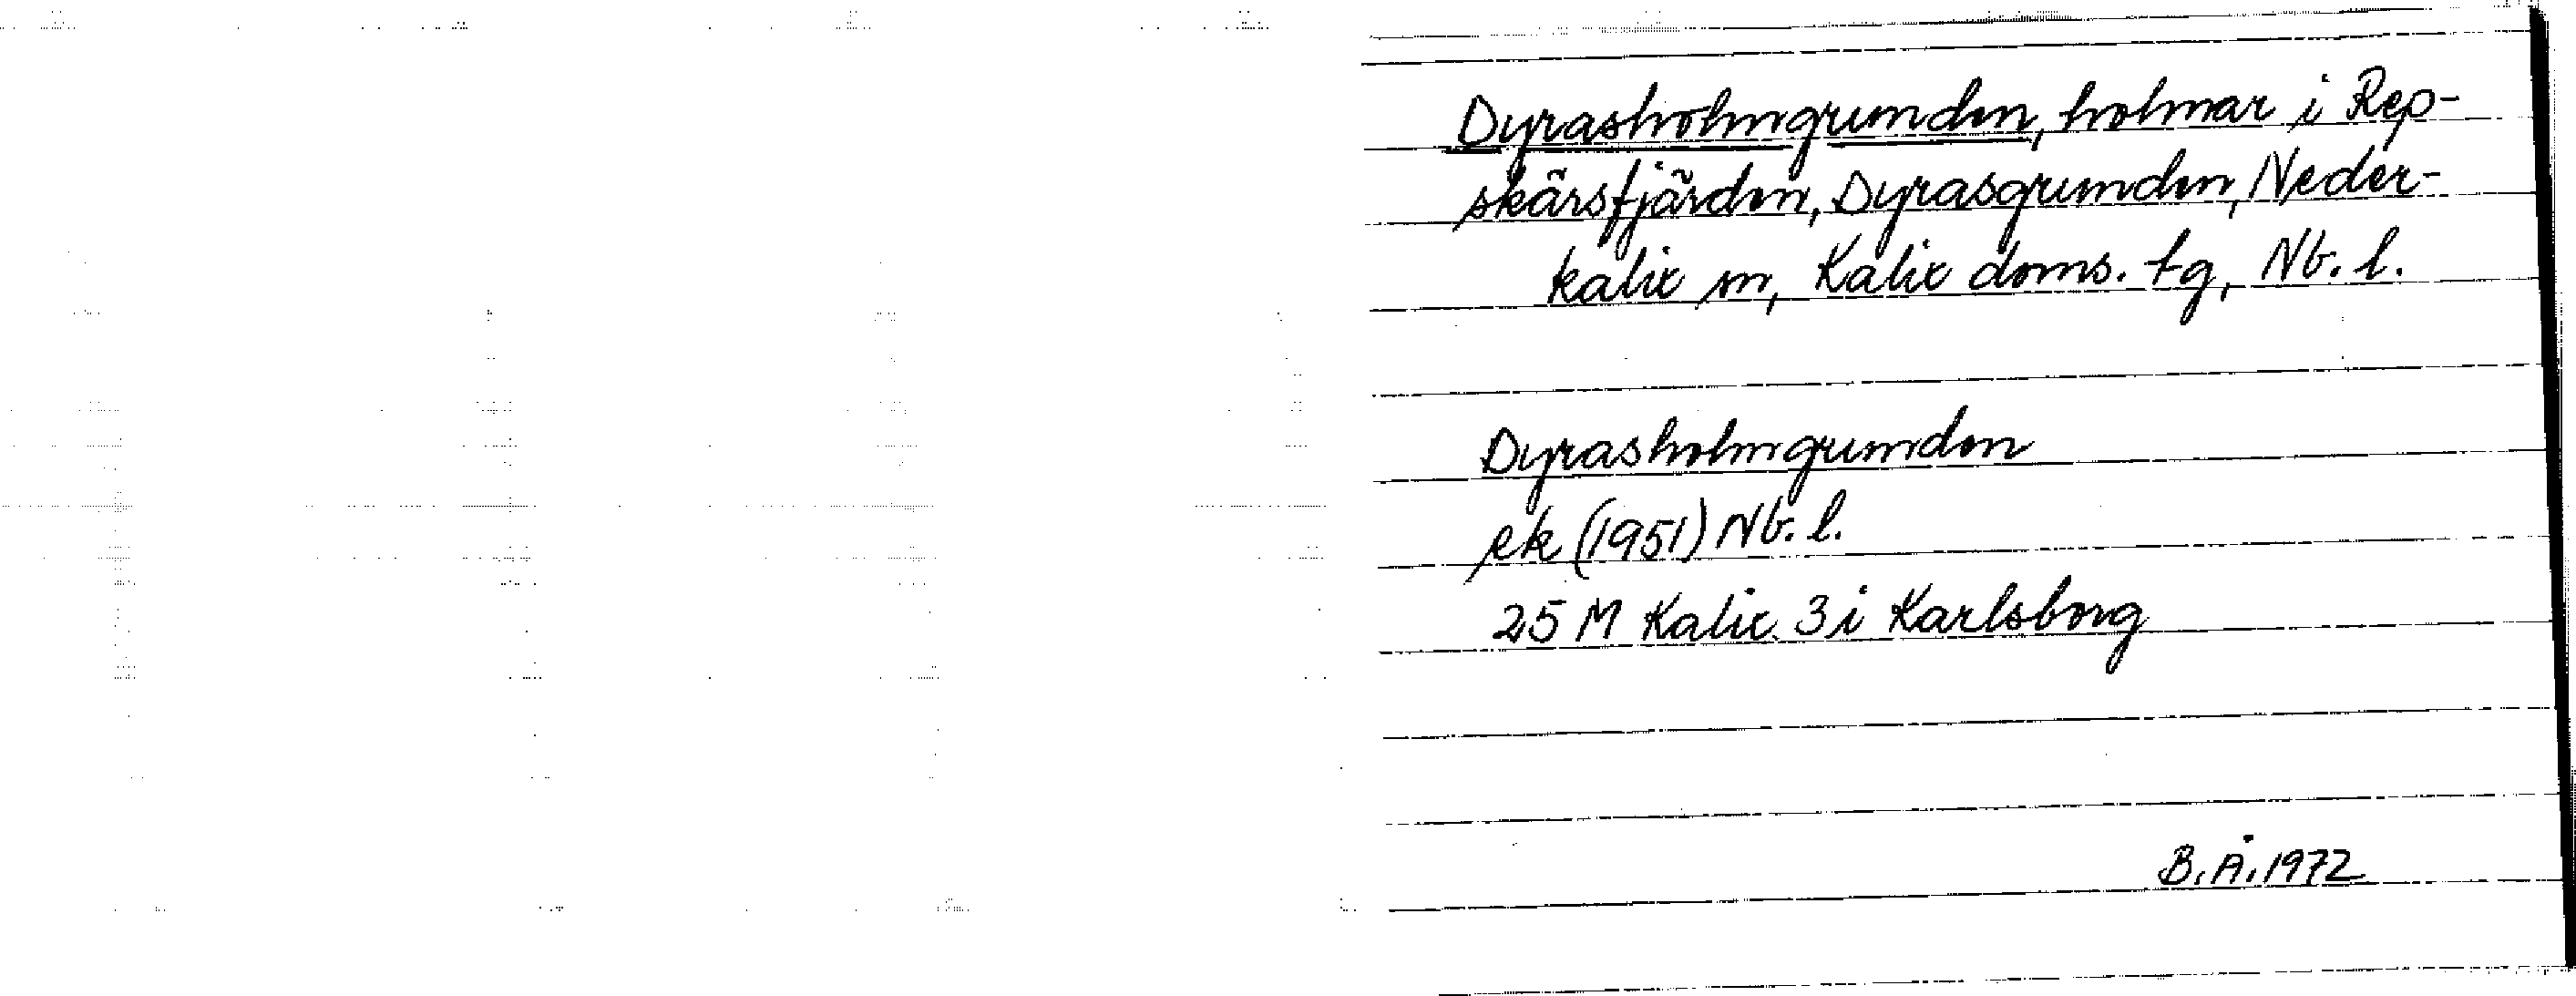 Dyrasholmgrunden, holmar i Rep-
skärsfjärden, Dyrasgrunden, Neder-
kalix sn, Kalix doms. tg, Nb. l.
Dyrasholmgrunden
ek (1951) Nb. l.
25 M Kalix 3i Karlsborg
B.Å. 1972